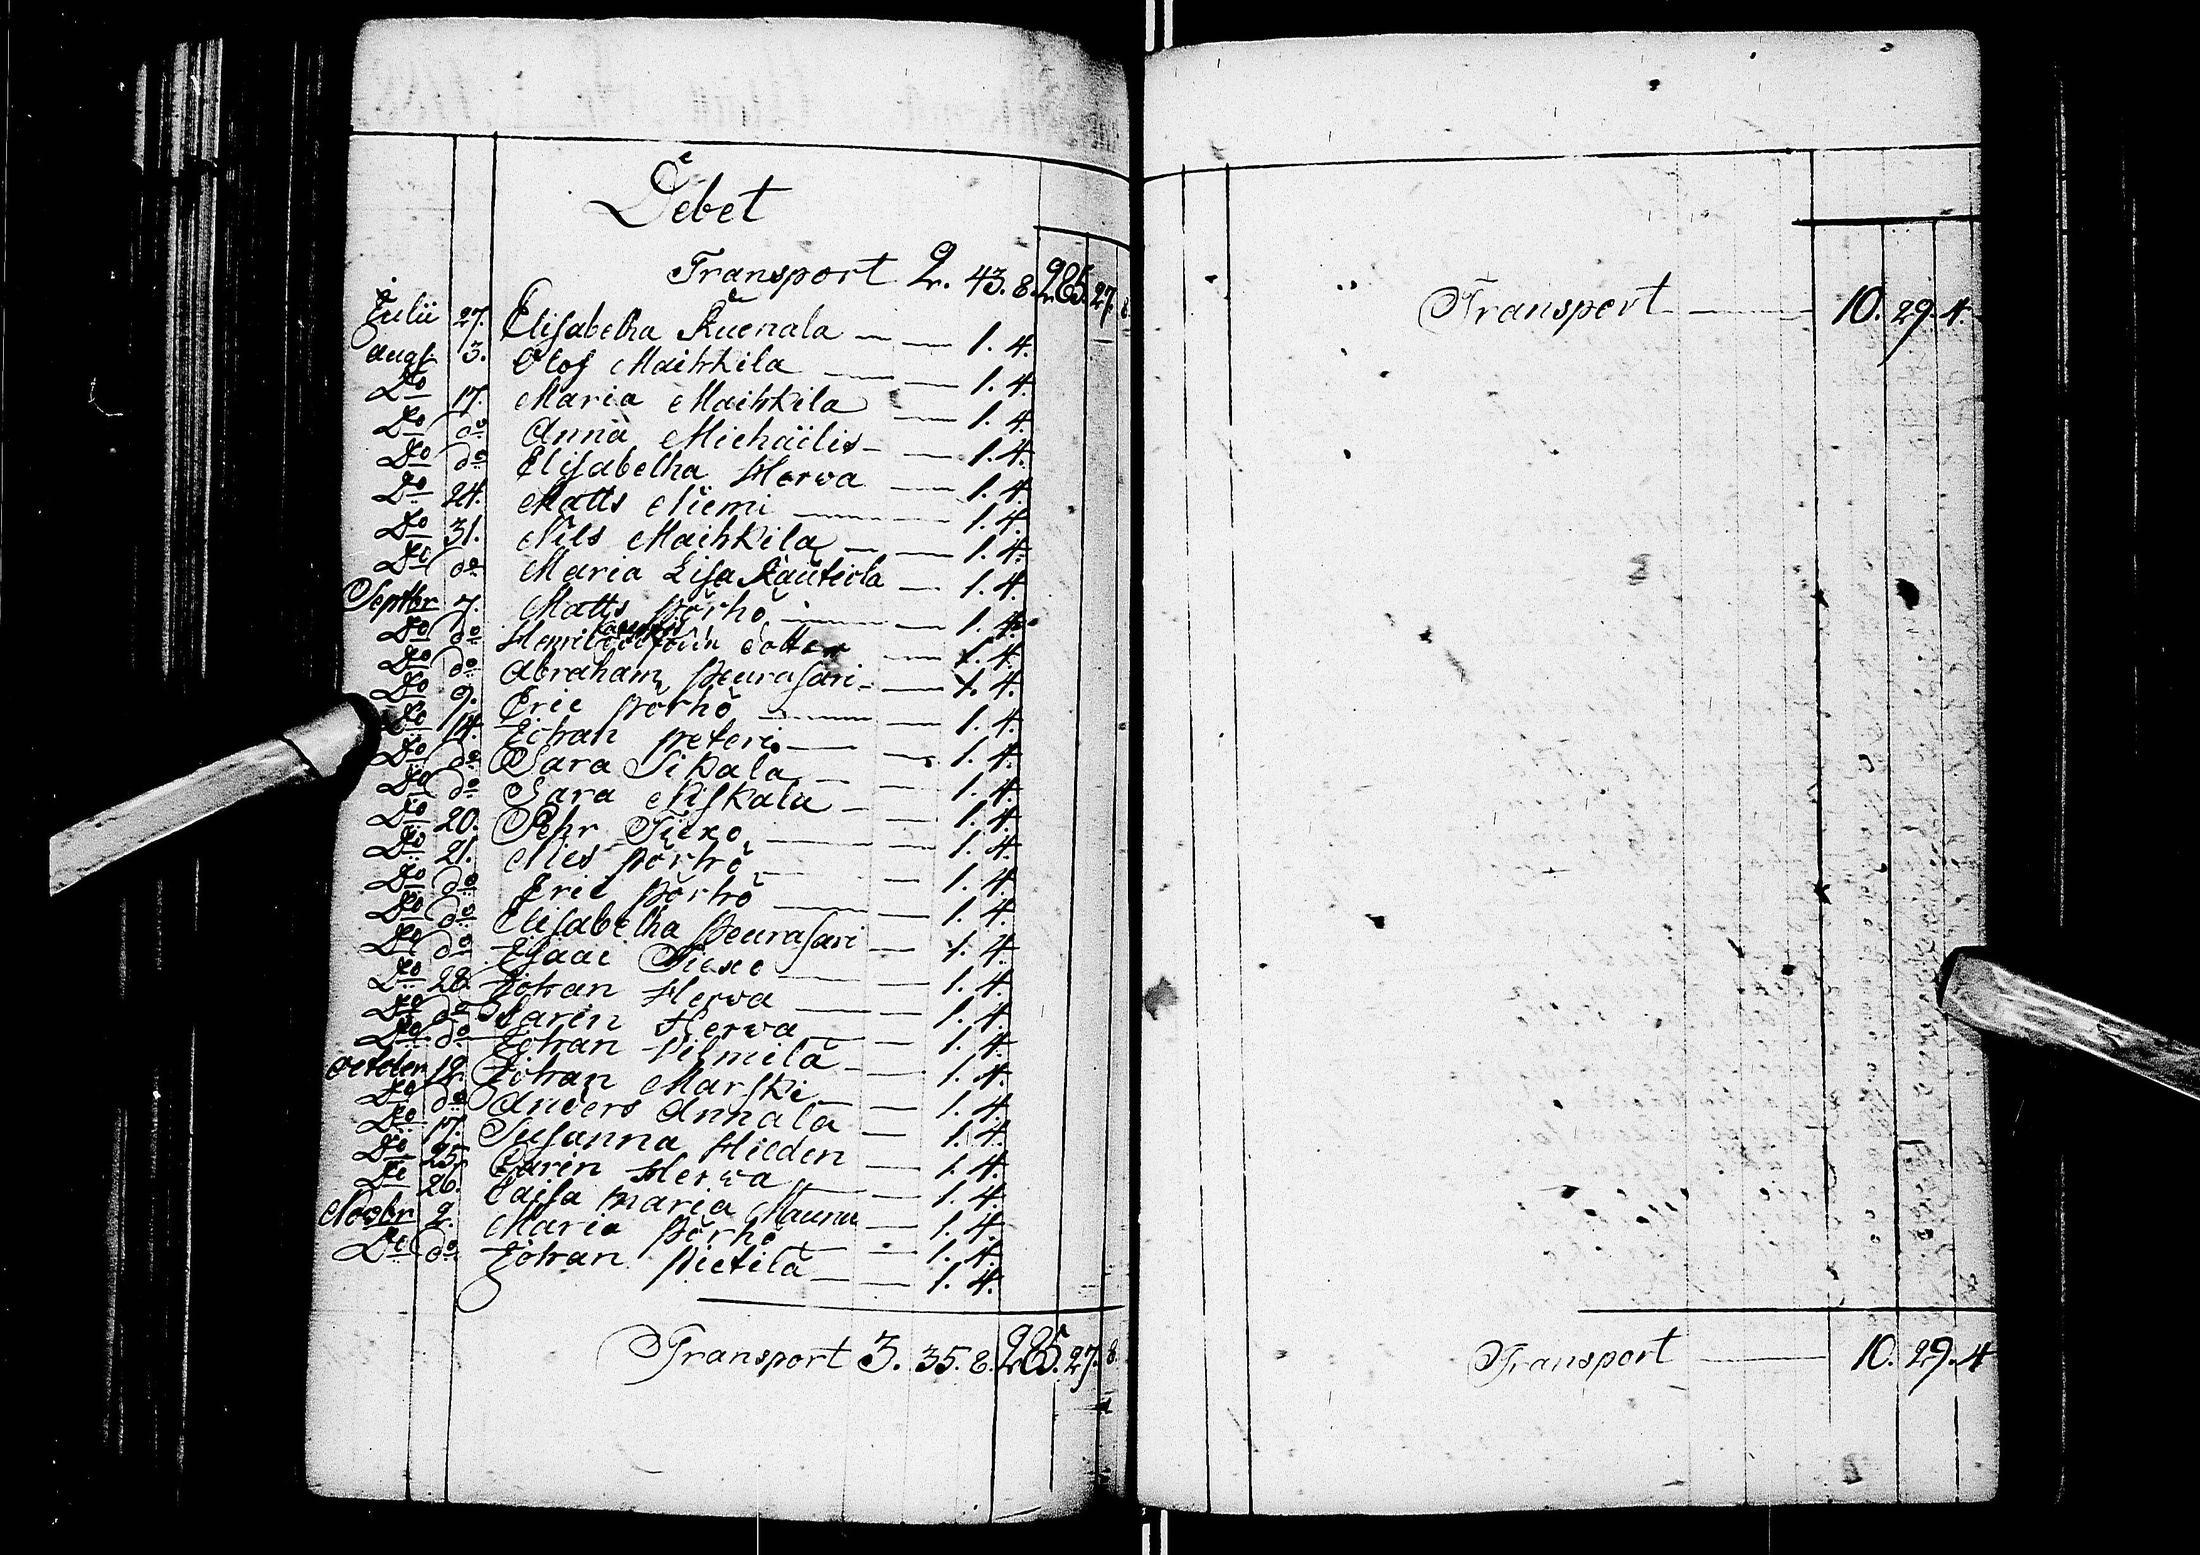 Debet
Transport 2. 43. 8. 285. 27. 8
Julii 27. Elisabetha Kuenala 1. 4.
Augs. 3. Olof Maihkila 1. 4.
Do 17. Maria Maihkila 1. 4.
Do do Anna Michäilis 1. 4.
Do do Elisabetha Herva 1. 4.
Do 24. Matts Niemi 1. 4.
Do 31. Nils Maihkila 1. 4.
Do do Maria Lisa Kauteola 1. 4.
Septbr 7. Matts Pörhö 1. 4.
Do do dotter 1. 4.
Do do Abraham Peurasari 1. 4.
Do 9. Eric Pörhö 1. 4.
Do 14. Johan Peteri 1. 4.
Do do Sara Sikala 1. 4.
Do do Sara Niskala 1. 4.
Do 20. Pehr Tiexo 1. 4.
Do 21. Nies Pörhö 1. 4.
Do do Eric Pörhö 1. 4.
Do do Elisabetha Peurasari 1. 4.
Do do Isaac Tiexo 1. 4.
Do 28. Johan Herva 1. 4.
Do do Carin Herva 1. 4.
Do do Johan 1. 4.
October 12. Johan Marski 1. 4.
Do do Anders Annala 1. 4.
Do 17. Susanna Hilden 1. 4.
Do 25. Carin Herva 1. 4.
Do 26. Caisa Maria Maunu 1. 4.
Novbr 2. Maria Pörhö 1. 4.
Do do Johan Pietilä 1. 4.
Transport 3. 35. 8. 285. 27. 8.
Transport 10. 29. 4
Transport 10. 29. 4